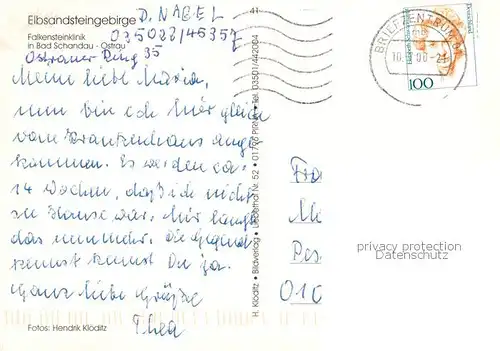 Elbsandsteingebirge
Falkensteinklinik
in Bad Schandau - Ostrau
D. NAGEL
035022/45357
Ostrauer Ring 35
Meine liebe Maria,
nun bin ich hier gleich
vom Krankenhaus ange
kommen. Es werden ca.
14 Wochen, daß ich nicht
zu Hause war. Mir langt
das nunmehr. Die Gegend
kennst kennst Du ja.
Ganz liebe Grüße
Thea
Fotos: Hendrik Klöditz
41
H. Klöditz • Bildverlag • Nr. 52 • 01796 PIRNA • Tel. 03501/442004
BRIEFZENTRUM 01
100
Fra
010
privacy protection
Datenschutz